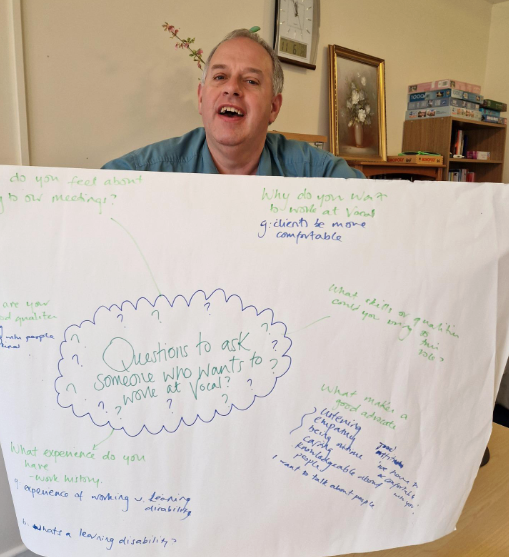 do you feel about
to our meetings?
Why do you want
to work at Vocal
g. clients be more
comfortable
are your
people
What skills or qualities
could you bring to
role?
Questions to ask
someone who wants to
work at Vocal?
What makes a
good advocate
listening
empathy
being
caring
knowledgeable about
people
I want to talk about people
What experience do you
have
- work history.
experience of working w. learning
disability
whats a learning disability?